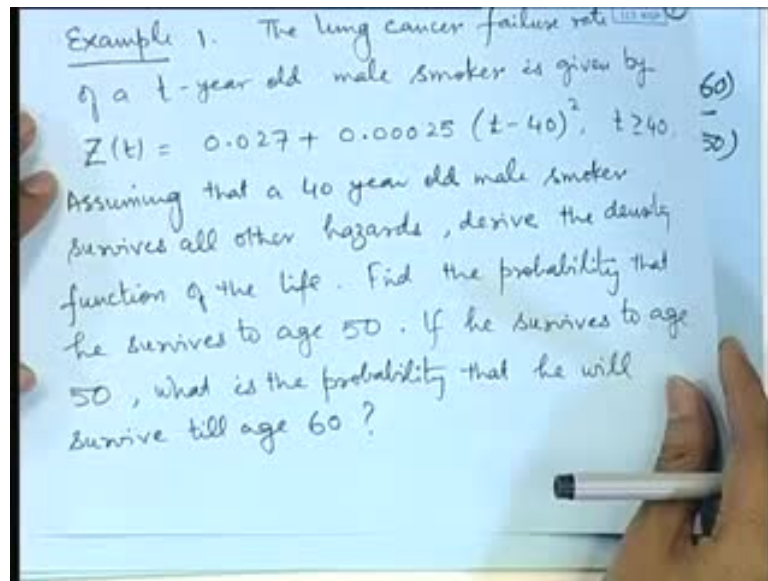 Example 1. The lung cancer failure rate
of a t-year old male smoker is given by
Z(t) = 0.027 + 0.00025 (t-40)², t≥40.
Assuming that a 40 year old male smoker
survives all other hazards, derive the density
function of the life. Find the probability that
he survives to age 50. If he survives to age
50, what is the probability that he will
survive till age 60?
60)
50)